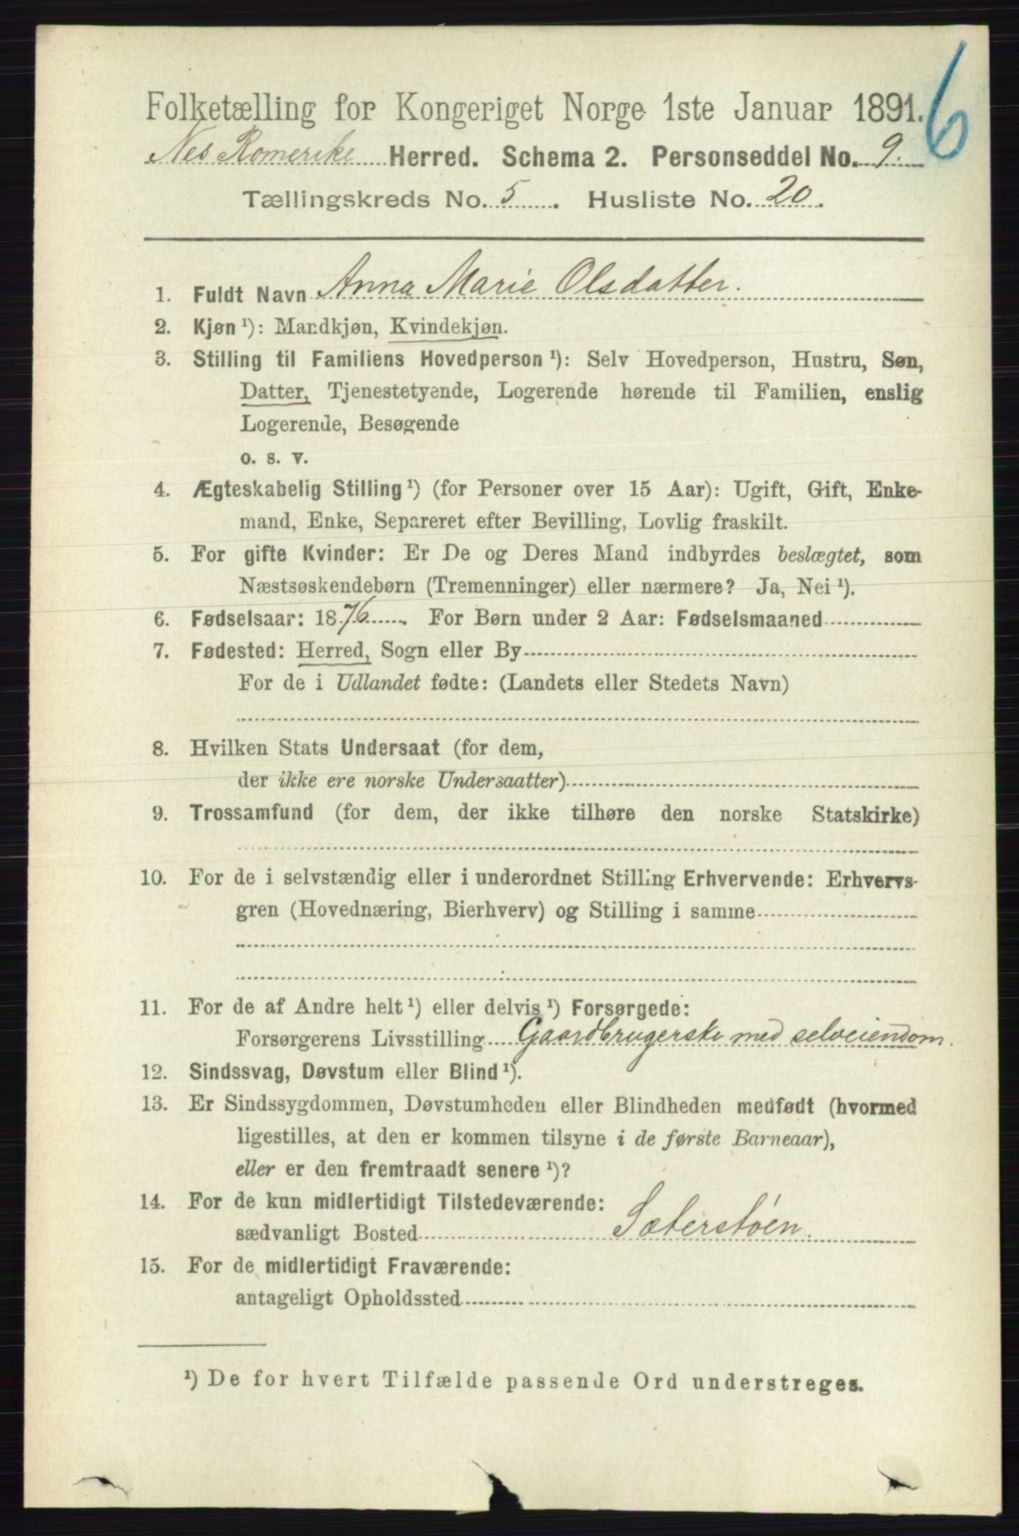 6
Folketælling for Kongeriget Norge 1ste Januar 1891.
Nes Romerike Herred. Schema 2. Personseddel No. 9.
Tællingskreds No. 5. Husliste No. 20.
1. Fuldt Navn Anna Marie Olsdatter.
2. Kjøn ¹): Mandkjøn, Kvindekjøn.
3. Stilling til Familiens Hovedperson ¹): Selv Hovedperson, Hustru, Søn,
Datter, Tjenestetyende, Logerende hørende til Familien, enslig
Logerende, Besøgende
o. s. v.
4. Ægteskabelig Stilling ¹) (for Personer over 15 Aar): Ugift, Gift, Enke-
mand, Enke, Separeret efter Bevilling, Lovlig fraskilt.
5. For gifte Kvinder: Er De og Deres Mand indbyrdes beslægtet, som
Næstsøskendebørn (Tremenninger) eller nærmere? Ja, Nei ¹).
6. Fødselsaar: 1876. For Børn under 2 Aar: Fødselsmaaned
7. Fødested: Herred, Sogn eller By
For de i Udlandet fødte: (Landets eller Stedets Navn)
8. Hvilken Stats Undersaat (for dem,
der ikke ere norske Undersaatter)
9. Trossamfund (for dem, der ikke tilhøre den norske Statskirke)
10. For de i selvstændig eller i underordnet Stilling Erhvervende: Erhvervs-
gren (Hovednæring, Bierhverv) og Stilling i samme
11. For de af Andre helt ¹) eller delvis ¹) Forsørgede:
Forsørgerens Livsstilling Gaardbrugerske med selveiendom.
12. Sindssvag, Døvstum eller Blind ¹).
13. Er Sindssygdommen, Døvstumheden eller Blindheden medfødt (hvormed
ligestilles, at den er kommen tilsyne i de første Barneaar),
eller er den fremtraadt senere ¹)?
14. For de kun midlertidigt Tilstedeværende:
sædvanligt Bosted Sæterstøen.
15. For de midlertidigt Fraværende:
antageligt Opholdssted
¹) De for hvert Tilfælde passende Ord understreges.